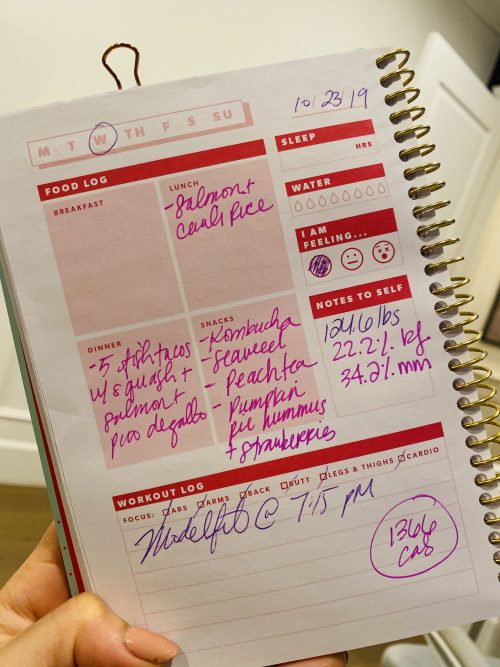 10/23/19
M T W TH F S SU
FOOD LOG
BREAKFAST
LUNCH
-Salmon +
cauli rice
SLEEP
HRS
WATER
I AM
FEELING...
DINNER
-5 fish tacos
w/ squash +
salmon +
pico de gallo
SNACKS
-Kombucha
-Seaweed
- Peach tea
- Pumpkin
pie hummus
+ strawberries
NOTES TO SELF
124.6 lbs
22.2% bf
34.2% mm
WORKOUT LOG
FOCUS: ABS ARMS BACK BUTT LEGS & THIGHS CARDIO
Modelfit @ 7:15 PM
1366
cals